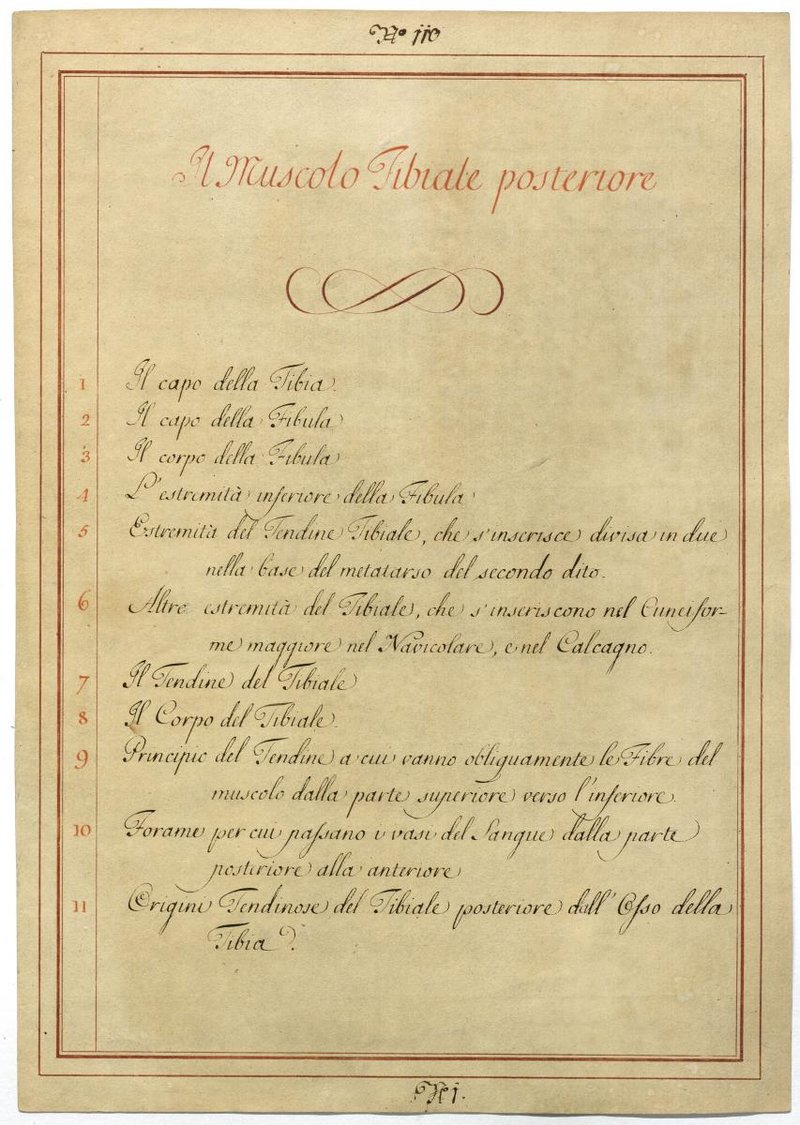 No 110
Il Muscolo Tibiale posteriore
1 Il capo della Tibia.
2 Il capo della Fibula
3 Il corpo della Fibula
4 L'estremità inferiore della Fibula
5 Estremità del Tendine Tibiale, che s'inserisce divisa in due
nella base del metatarso del secondo dito.
6 Altre estremità del Tibiale, che s'inseriscono nel Cuneifor-
me maggiore nel Navicolare, e nel Calcagno.
7 Il Tendine del Tibiale
8 Il Corpo del Tibiale.
9 Principio del Tendine a cui vanno obliguamente le Fibre del
muscolo dalla parte superiore verso l'inferiore.
10 Forame per cui paſsano i vasi del Sangue dalla parte
posteriore alla anteriore
11 Origini Tendinose del Tibiale posteriore dall' Oſso della
Tibia.